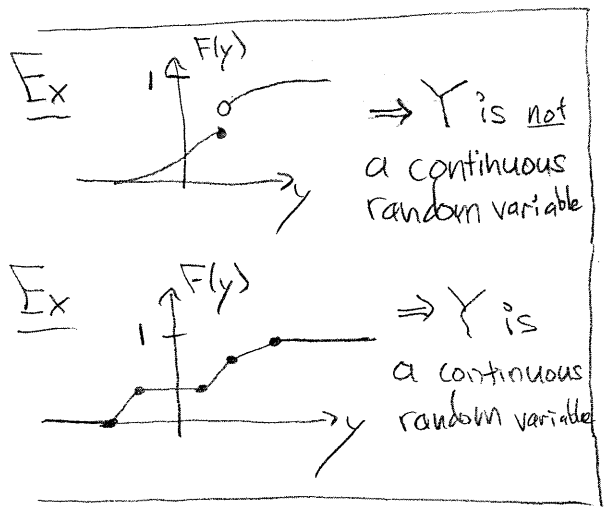 Ex
F(y)
1
y
⇒ Y is not
a continuous
random variable
Ex
F(y)
1
y
⇒ Y is
a continuous
random variable